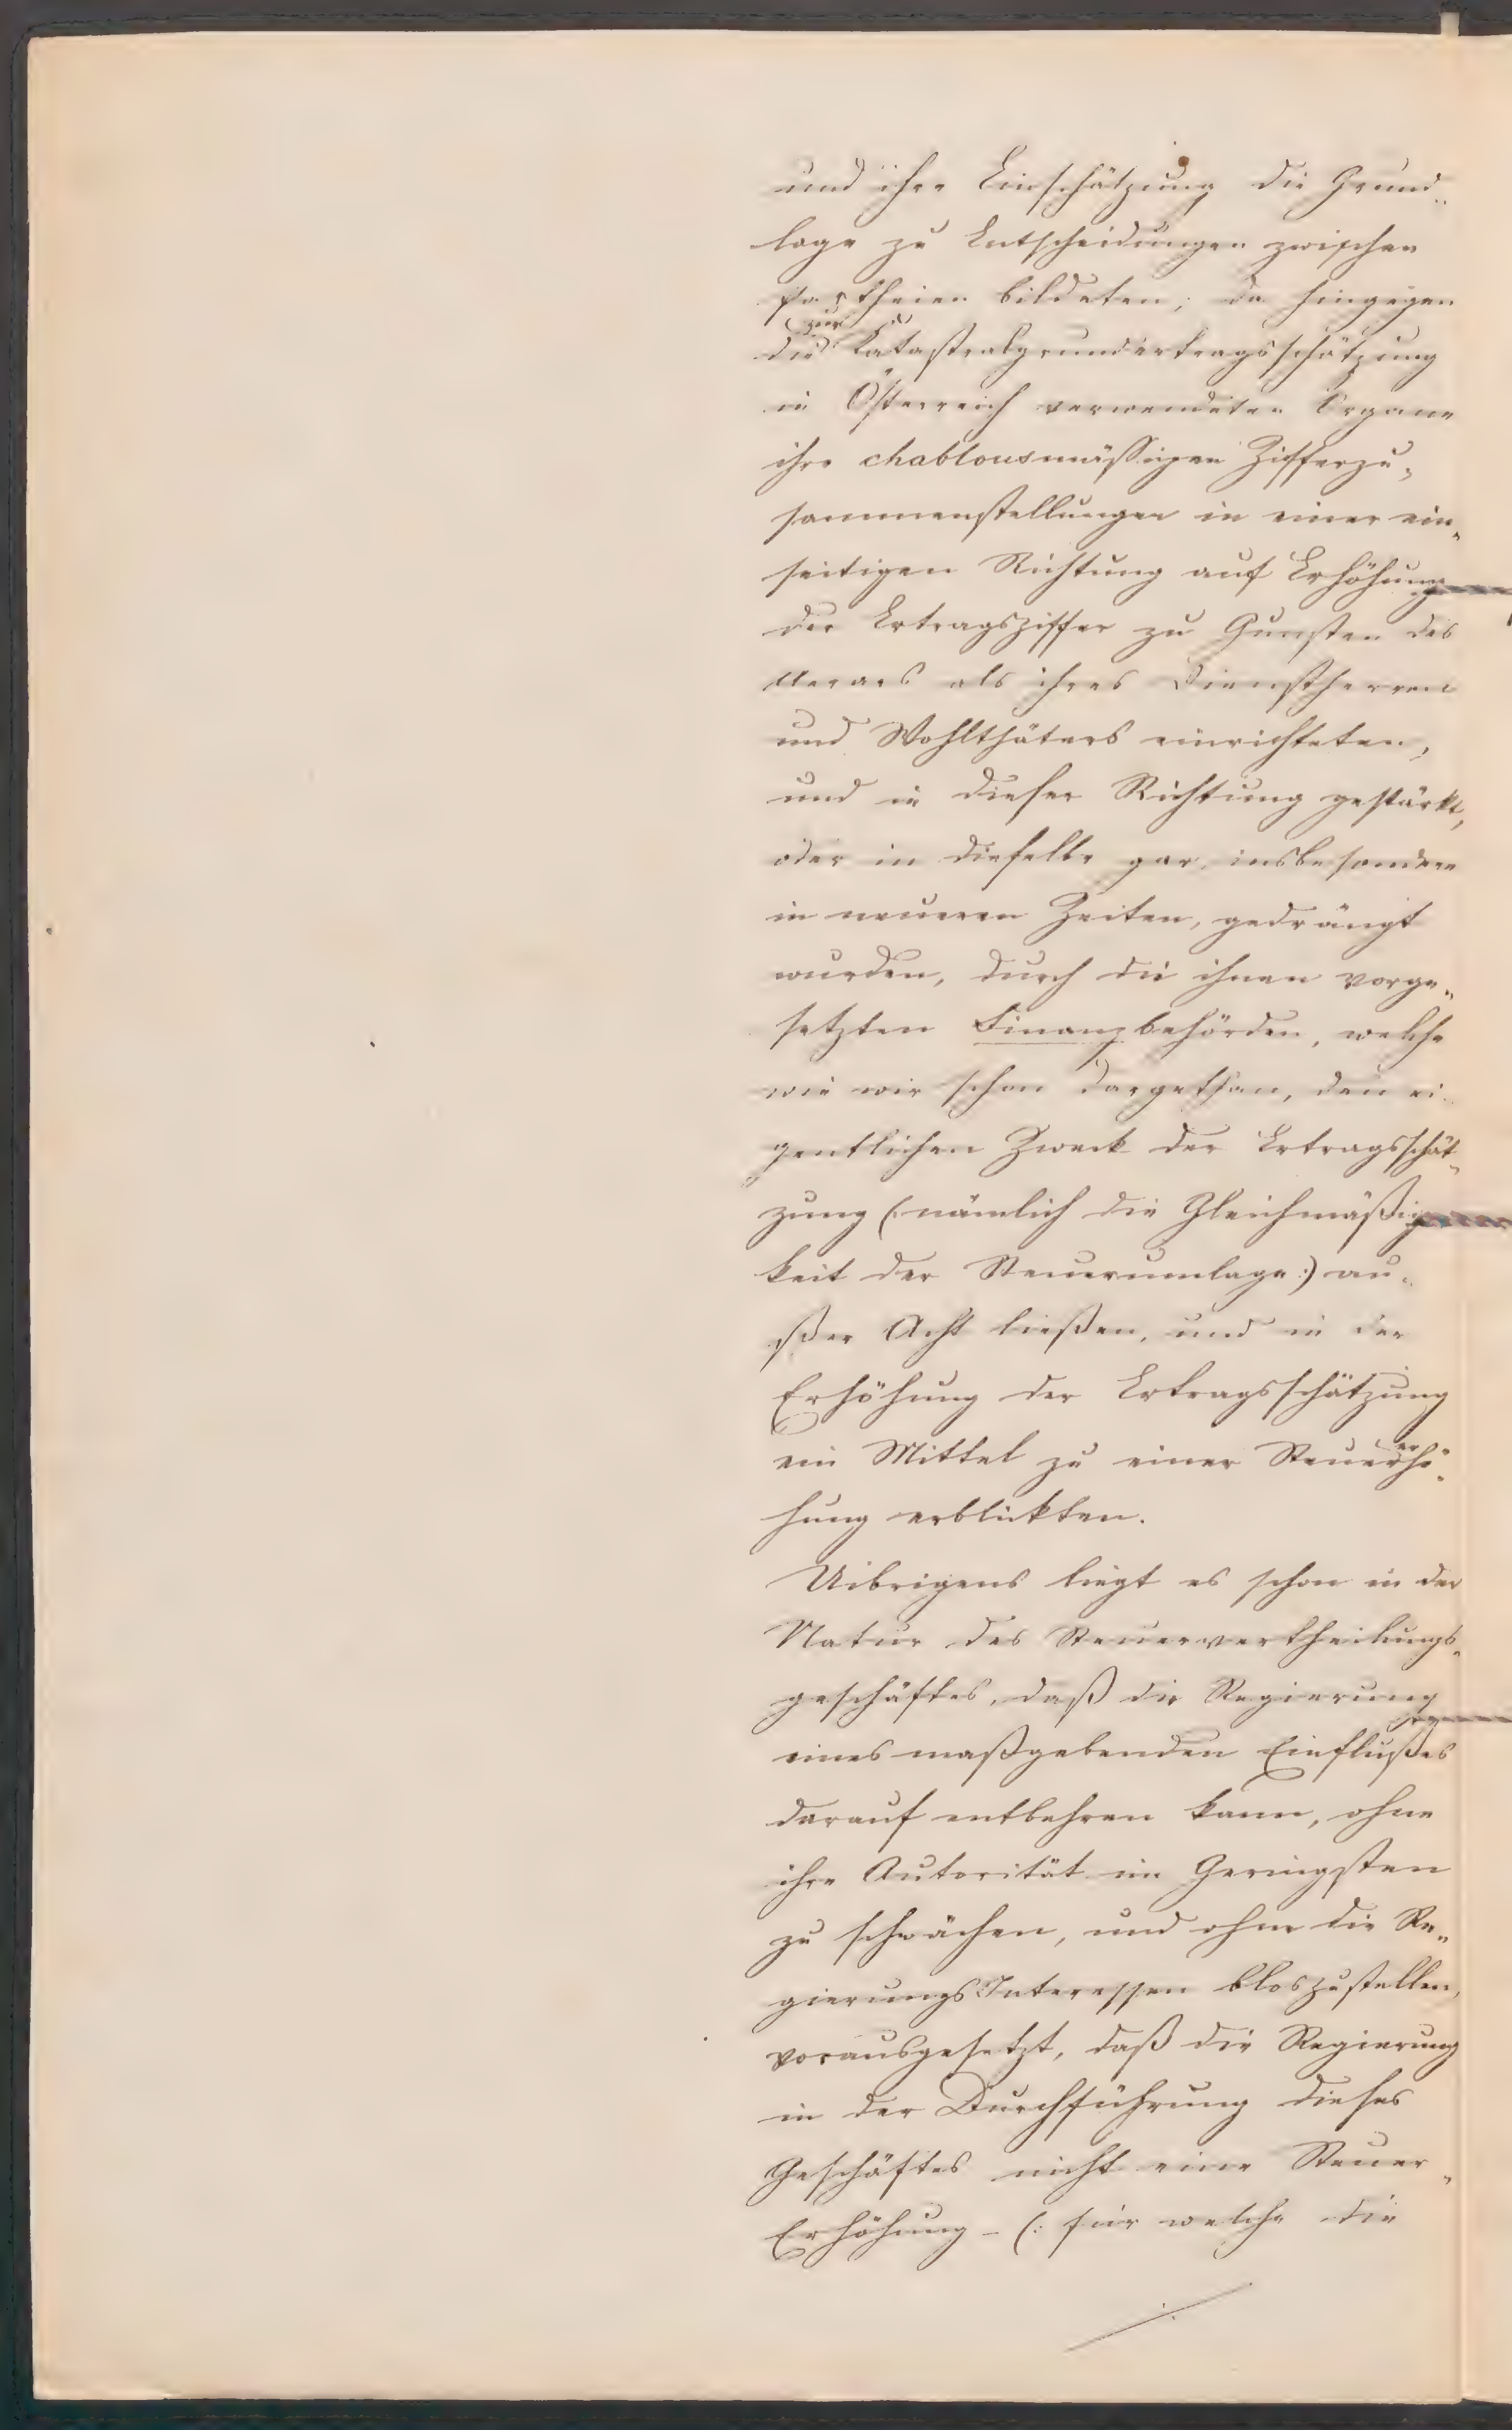 und ihre Einschätzung die Grund„
lage zu Entscheidungen zwischen
Partheien bildeten; da hingegen
die zur Katastralgrundertragsschätzung
in Österreich verwendeten Organe
ihre chablousmässigen Zifferzu„
sammenstellungen in einer ein„
seitigen Richtung auf Erhöhung
der Ertragsziffer zu Gunsten des
Aerars als ihres Dienstherren
und Wohlthäters einrichteten,
und in dieser Richtung gestärkt,
oder in dieselbe gar, insbesondere
in neueren Zeiten, gedrängt
wurden, durch die ihnen vorge„
setzten Finanzbehörden, welche
wie wir schon dargethan, den ei„
gentlichen Zweck der Ertragsschät„
zung (: nämlich die Gleichmäßig
keit der Steuerumlage :) au„
ßer Acht ließen, und in der
Erhöhung der Ertragsschätzung
ein Mittel zu einer Steuererhö„
hung erblickten.
Uibrigens liegt es schon in der
Natur des Steuervertheilungs„
geschäftes, daß die Regierung
eines maßgebenden Einflußes
darauf entbehren kann, ohne
ihre Autorität im Geringsten
zu schwächen, und ohne die Re„
gierungs Interessen bloszustellen,
vorausgesetzt, daß die Regierung
in der Durchführung dieses
Geschäftes nicht eine Steuer„
Erhöhung – (: für welche die
./.